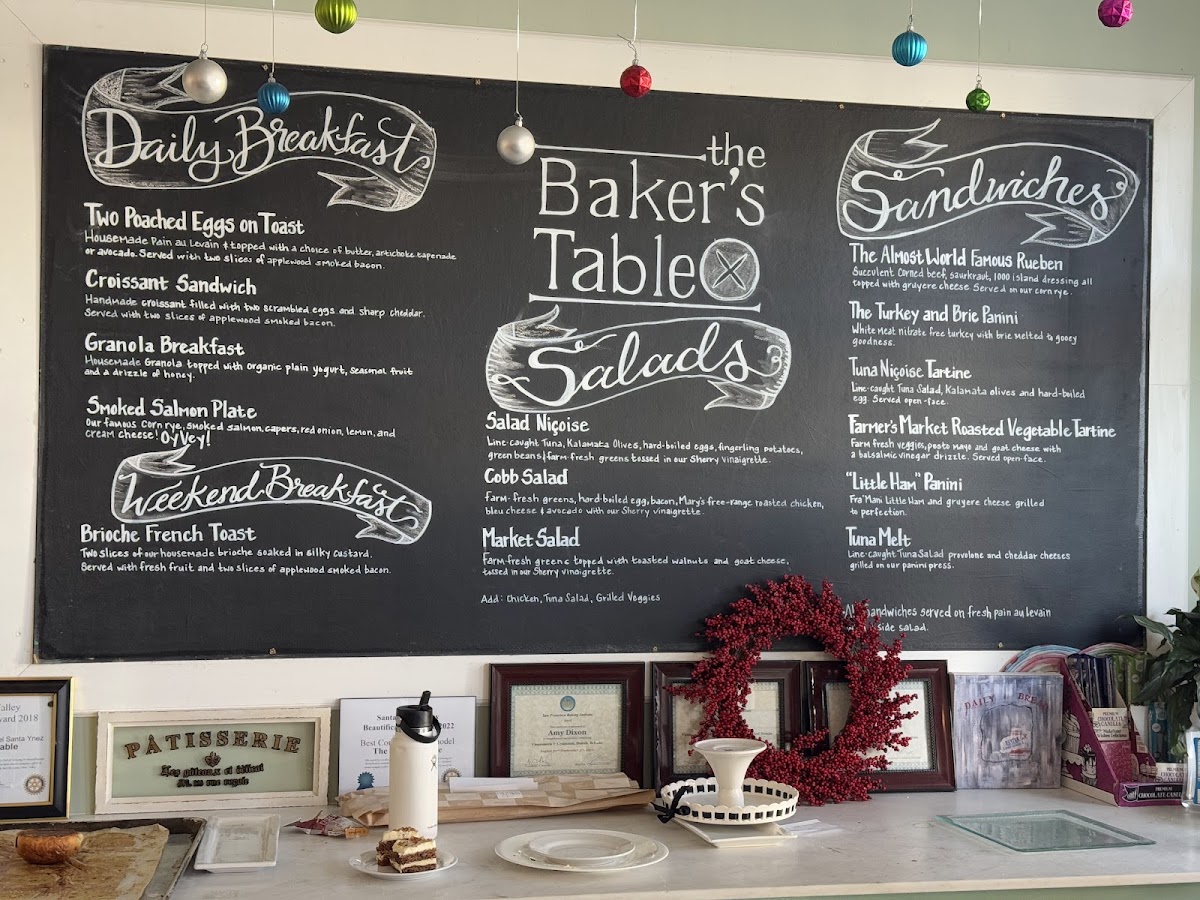 Daily Breakfast
Two Poached Eggs on Toast
Housemade Pain au Levain & topped with a choice of butter, artichoke tapenade
or avocado. Served with two slices of applewood smoked bacon.
Croissant Sandwich
Handmade croissant filled with two scrambled eggs and sharp cheddar.
Served with two slices of applewood smoked bacon.
Granola Breakfast
Housemade Granola topped with organic plain yogurt, seasonal fruit
and a drizzle of honey.
Smoked Salmon Plate
Our famous corn rye, smoked salmon, capers, red onion, lemon, and
cream cheese! Oy Vey!
Weekend Breakfast
Brioche French Toast
Two slices of our housemade brioche soaked in silky custard.
Served with fresh fruit and two slices of applewood smoked bacon.
the
Baker's
Table
Salads
Salad Niçoise
Line-caught Tuna, Kalamata Olives, hard-boiled eggs, fingerling potatoes,
green beans & farm-fresh greens tossed in our Sherry vinaigrette.
Cobb Salad
Farm-fresh greens, hard-boiled egg, bacon, Mary's free-range roasted chicken,
bleu cheese & avocado with our Sherry vinaigrette.
Market Salad
Farm-fresh greens topped with toasted walnuts and goat cheese,
tossed in our Sherry vinaigrette.
Add: Chicken, Tuna Salad, Grilled Veggies
Sandwiches
The Almost World Famous Rueben
Succulent Corned beef, saurkraut, 1000 island dressing all
topped with gruyere cheese. Served on our corn rye.
The Turkey and Brie Panini
White meat nitrate free turkey with brie melted to gooey
goodness.
Tuna Niçoise Tartine
Line-caught Tuna Salad, Kalamata olives and hard-boiled
egg. Served open-face.
Farmer's Market Roasted Vegetable Tartine
Farm fresh veggies, pesto mayo and goat cheese with
a balsalmic vinegar drizzle. Served open-face.
"Little Ham" Panini
Fra'Mani Little Ham and gruyere cheese grilled
to perfection.
Tuna Melt
Line-caught Tuna Salad provolone and cheddar cheeses
grilled on our panini press.
All sandwiches served on fresh pain au levain
side salad.
Valley
Award 2018
Santa Ynez
Table
PÂTISSERIE
Santa
Beautific 2022
Best Co model
The
San Francisco Baking Institute
Amy Dixon
DAILY BRE
PREMIUM
CHOCOLATE CANELLA
PREMIUM CHOCOLATE CANE